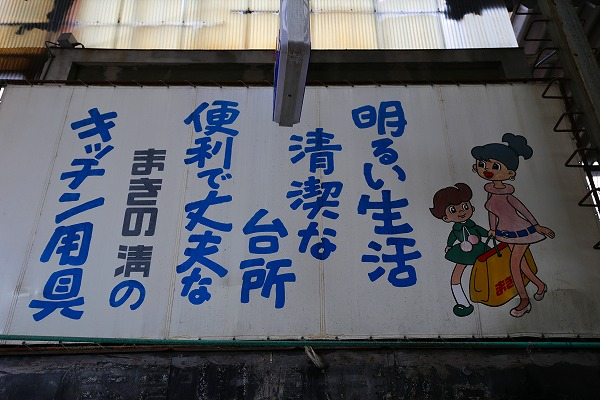 明るい生活
清潔な
台所
便利で丈夫な
まきの清の
キッチン用具
まき